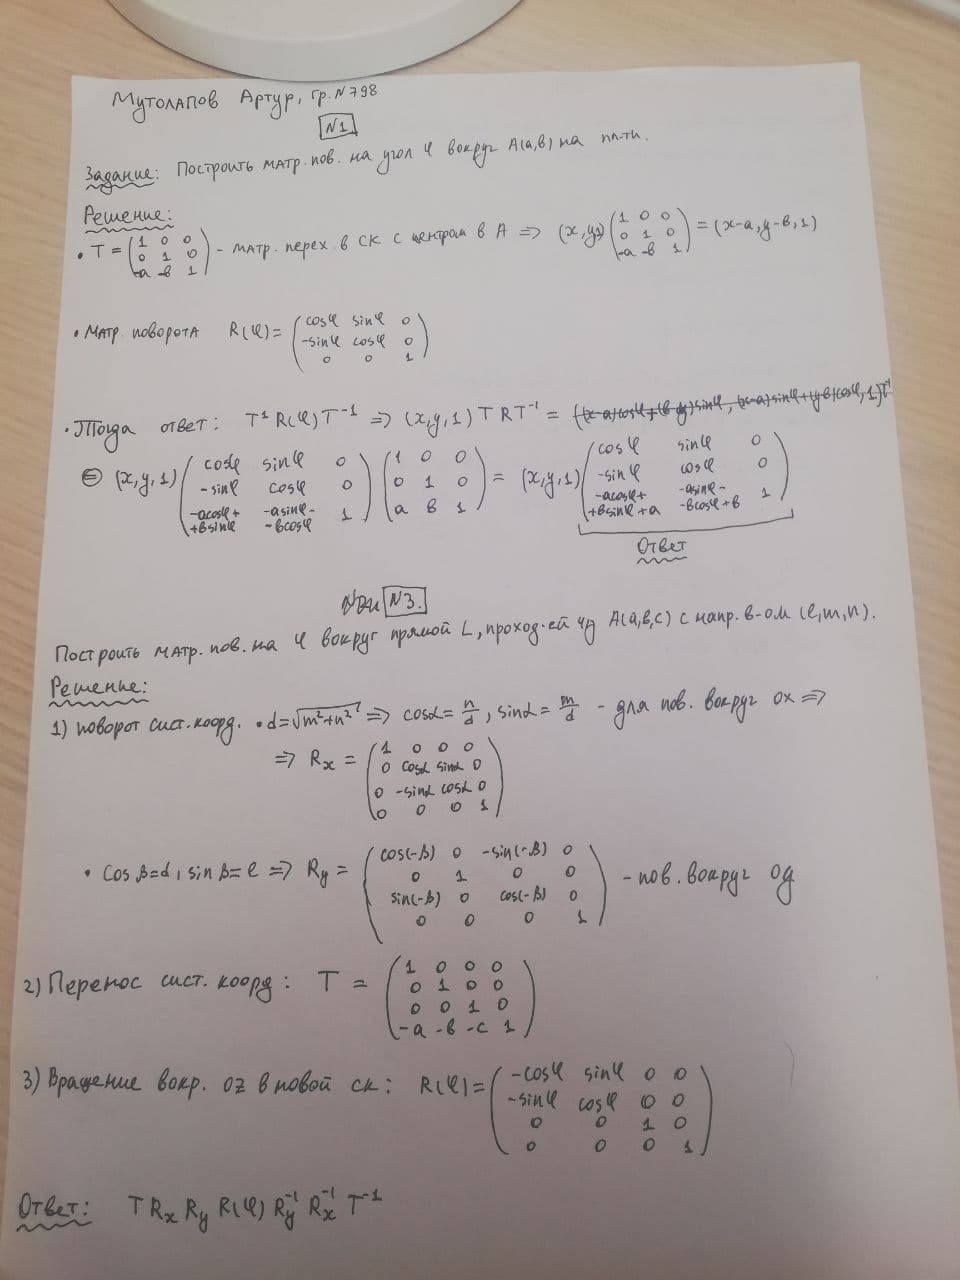 Мутолапов Артур, гр. N798
N1
Задание: Построить матр. пов. на угол φ вокруг A(a,b) на пл-ти.
Решение:
• T = (1 0 0; 0 1 0; -a -b 1) - матр. перех. в СК с центром в A => (x,y,1) (1 0 0; 0 1 0; -a -b 1) = (x-a, y-b, 1)
• Матр. поворота R(φ) = (cosφ sinφ 0; -sinφ cosφ 0; 0 0 1)
• Тогда ответ: T¹ R(φ) T⁻¹ => (x,y,1) T R T⁻¹ =
⊜ (x,y,1) (cosφ sinφ 0; -sinφ cosφ 0; -acosφ+ +bsinφ -asinφ- -bcosφ 1) (1 0 0; 0 1 0; a b 1) = (x,y,1) (cosφ sinφ 0; -sinφ cosφ 0; -acosφ+ +bsinφ+a -asinφ- -bcosφ+b 1)
Ответ
N3.
Построить матр. пов. на φ вокруг прямой L, проход-ей ч/з A(a,b,c) с напр. в-ом (l,m,n).
Решение:
1) поворот сист. коорд. • d=√(m²+n²) => cosα = n/d, sinα = m/d - для пов. вокруг ox =>
=> Rx = (1 0 0 0; 0 cosα sinα 0; 0 -sinα cosα 0; 0 0 0 1)
• cosβ=d, sinβ=l => Ry = (cos(-β) 0 -sin(-β) 0; 0 1 0 0; sin(-β) 0 cos(-β) 0; 0 0 0 1) - пов. вокруг oy
2) Перенос сист. коорд: T = (1 0 0 0; 0 1 0 0; 0 0 1 0; -a -b -c 1)
3) Вращение вокр. oz в новой ск: R(φ) = (-cosφ sinφ 0 0; -sinφ cosφ 0 0; 0 0 1 0; 0 0 0 1)
Ответ: T Rx Ry R(φ) Ry⁻¹ Rx⁻¹ T⁻¹